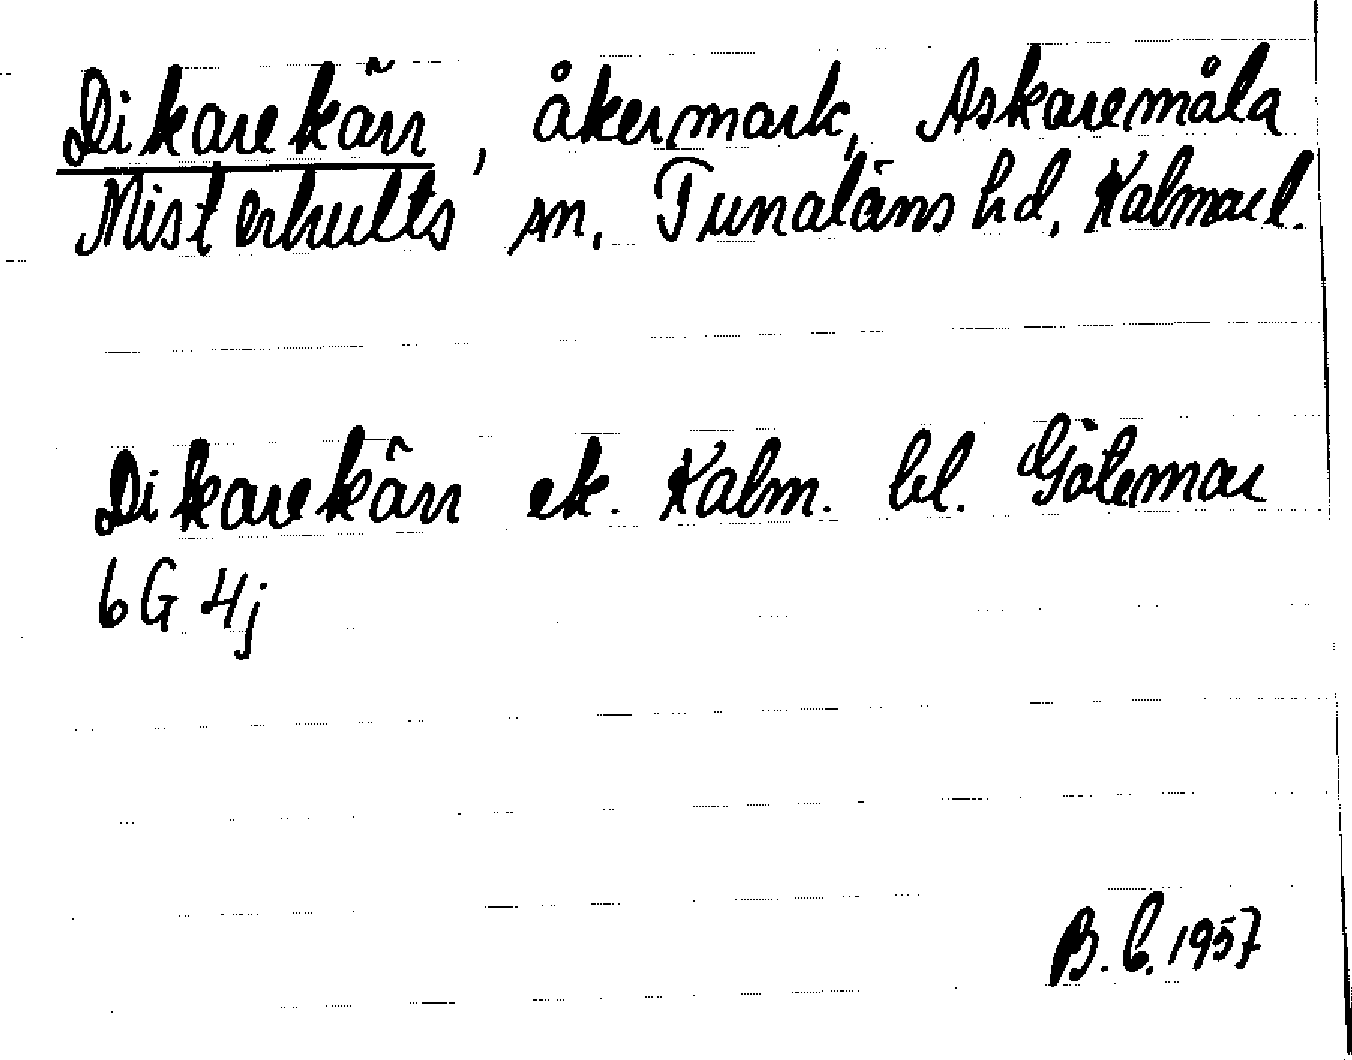 Dikarekärr, åkermark, Askaremåla
Misterhults sn. Tunaläns hd, Kalmar l.
Dikarekärr ek. Kalm. bl. Götemar
6G 4j
B. C. 1957